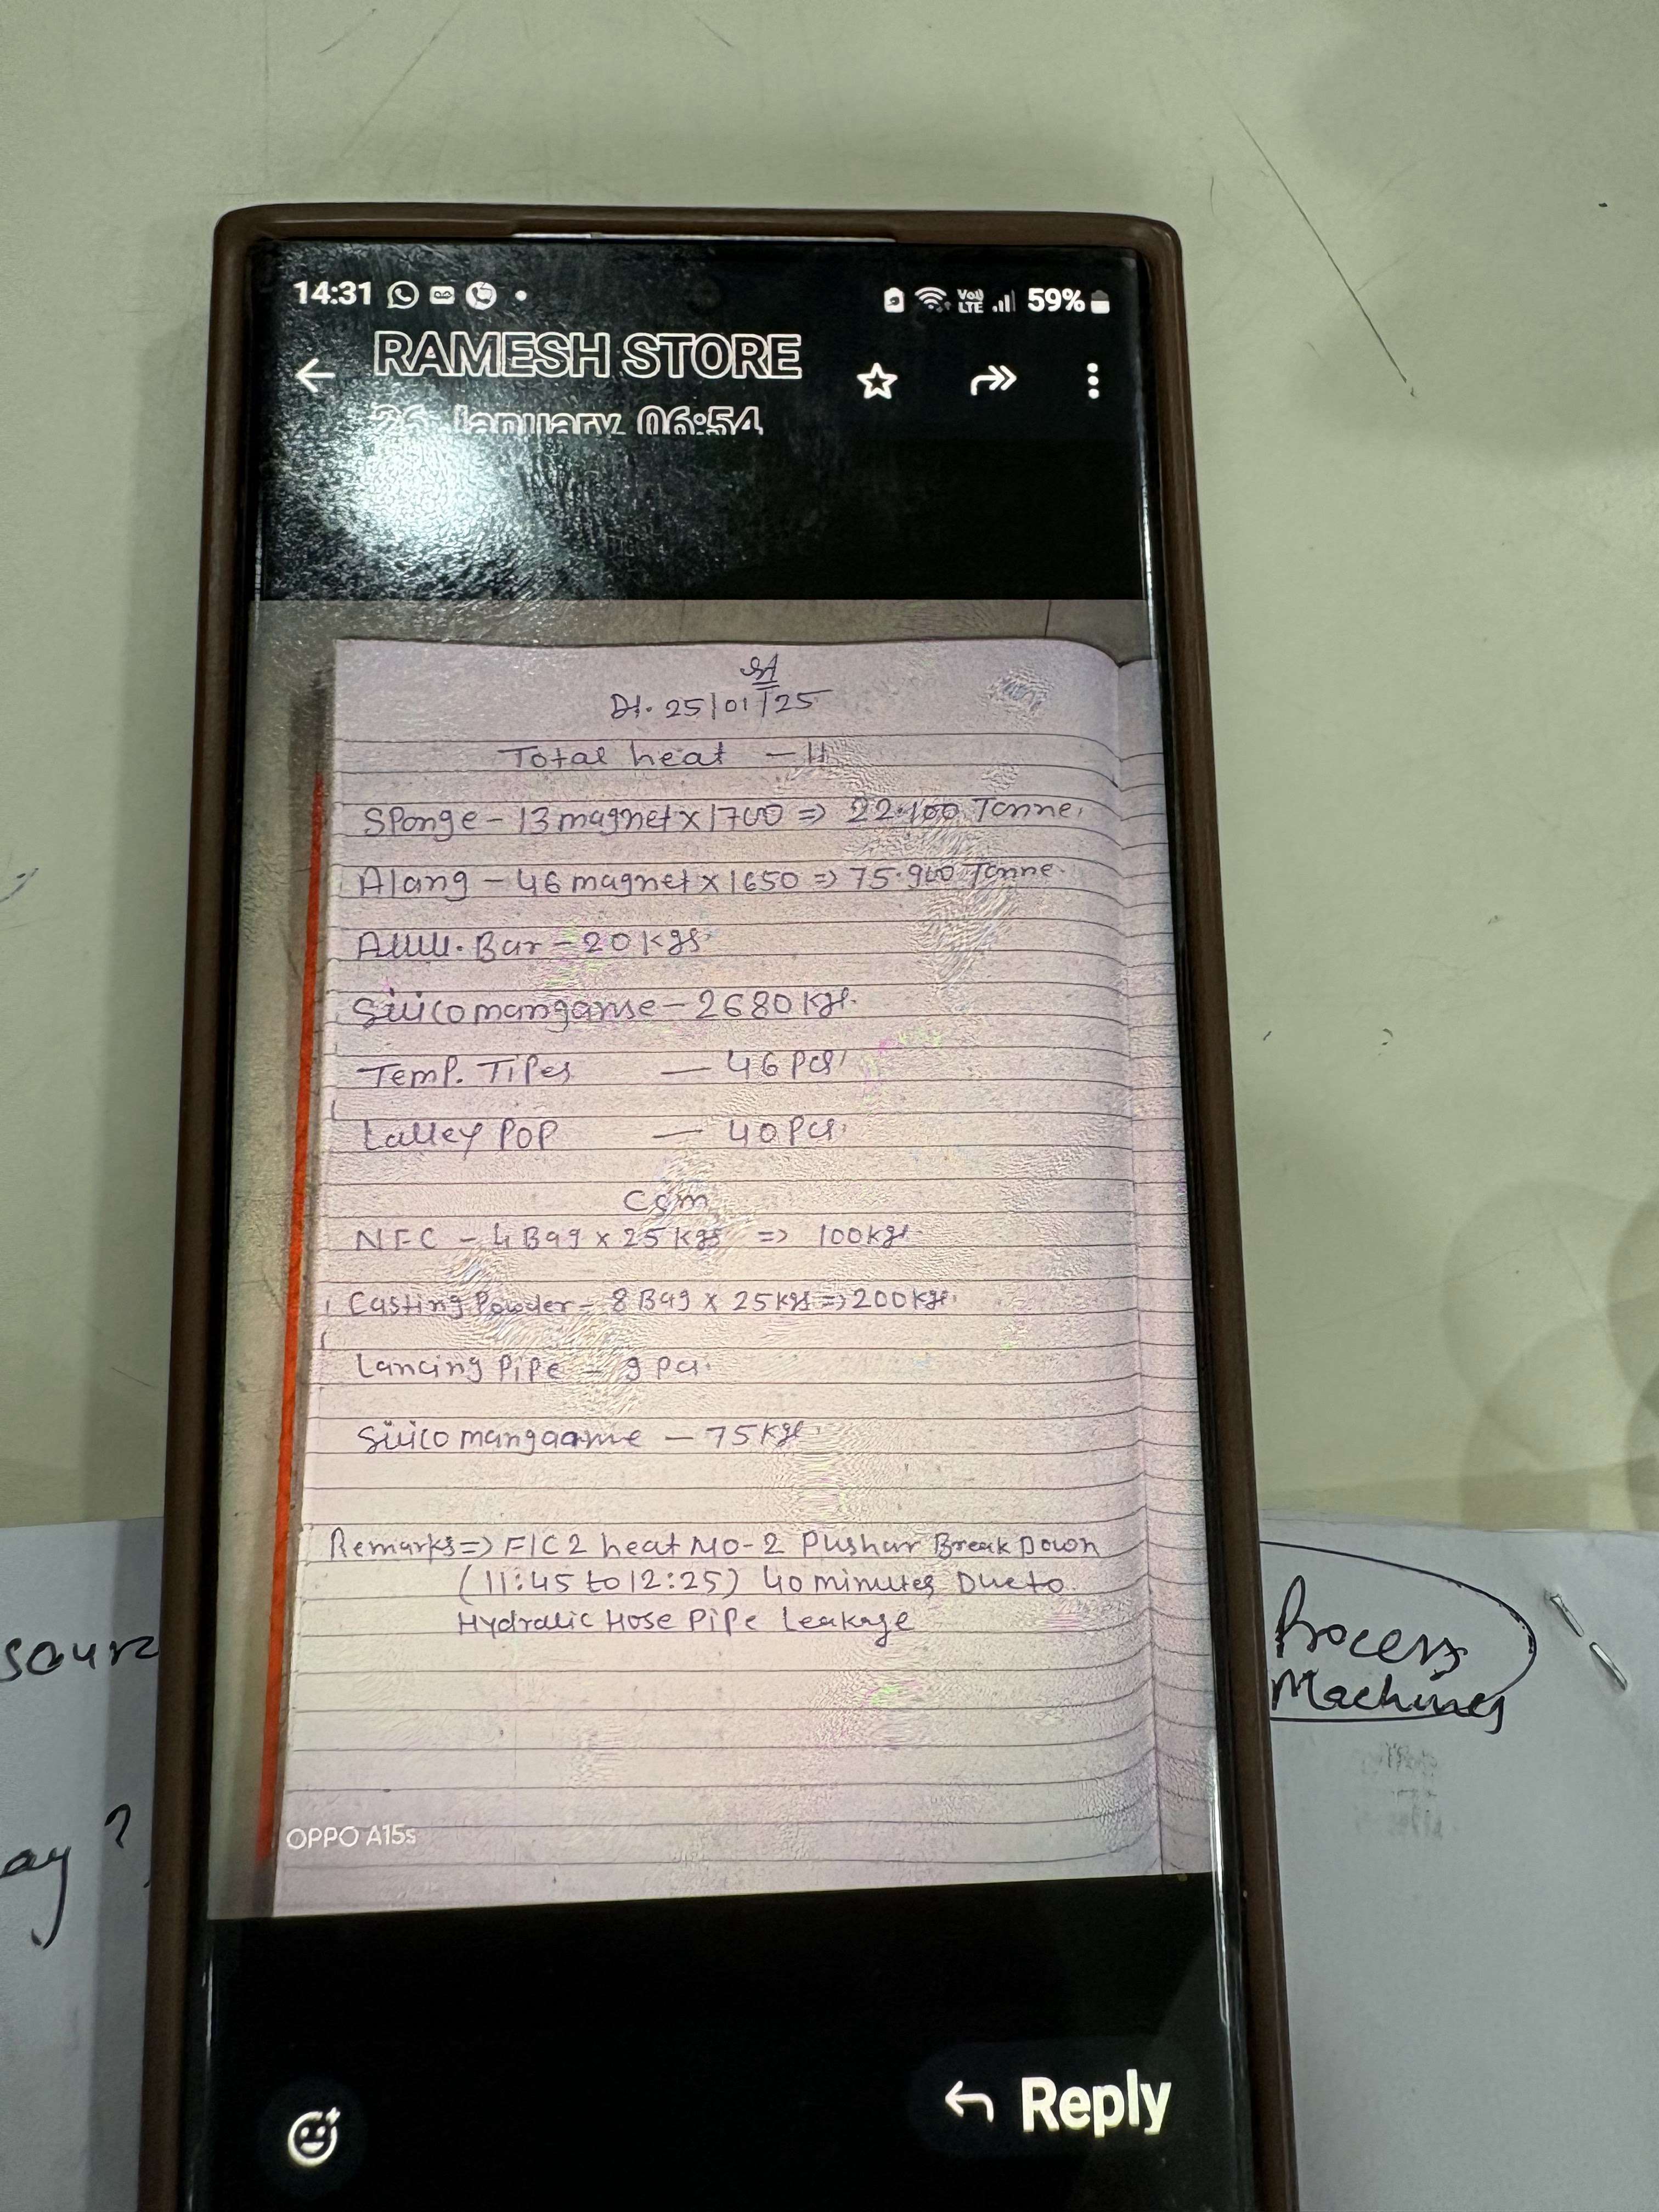 14:31
59%
RAMESH STORE
26 January, 06:54
Dt. 25/01/25
Total heat - 11
Sponge - 13 magnet x 1700 => 22.100 Tonne.
Alang - 46 magnet x 1650 => 75.900 Tonne.
Bar - 20 kgs.
Silicomanganse - 2680 kgs.
Temp. Tipes — 46 Pcs.
Lalley POP — 40 Pcs.
CCM
NFC - 4 Bag x 25 kgs => 100 kgs.
Casting Powder - 8 Bag x 25 kgs => 200 kgs.
Lancing Pipe - 9 Pcs.
- 75 kgs.
Remarks => F/C 2 heat NO-2 Pushar Break Down
(11:45 to 12:25) 40 minutes Due to
Hydralic Hose Pipe Leakage
sourc
Process
Machines
ay ?
OPPO A15s
Reply